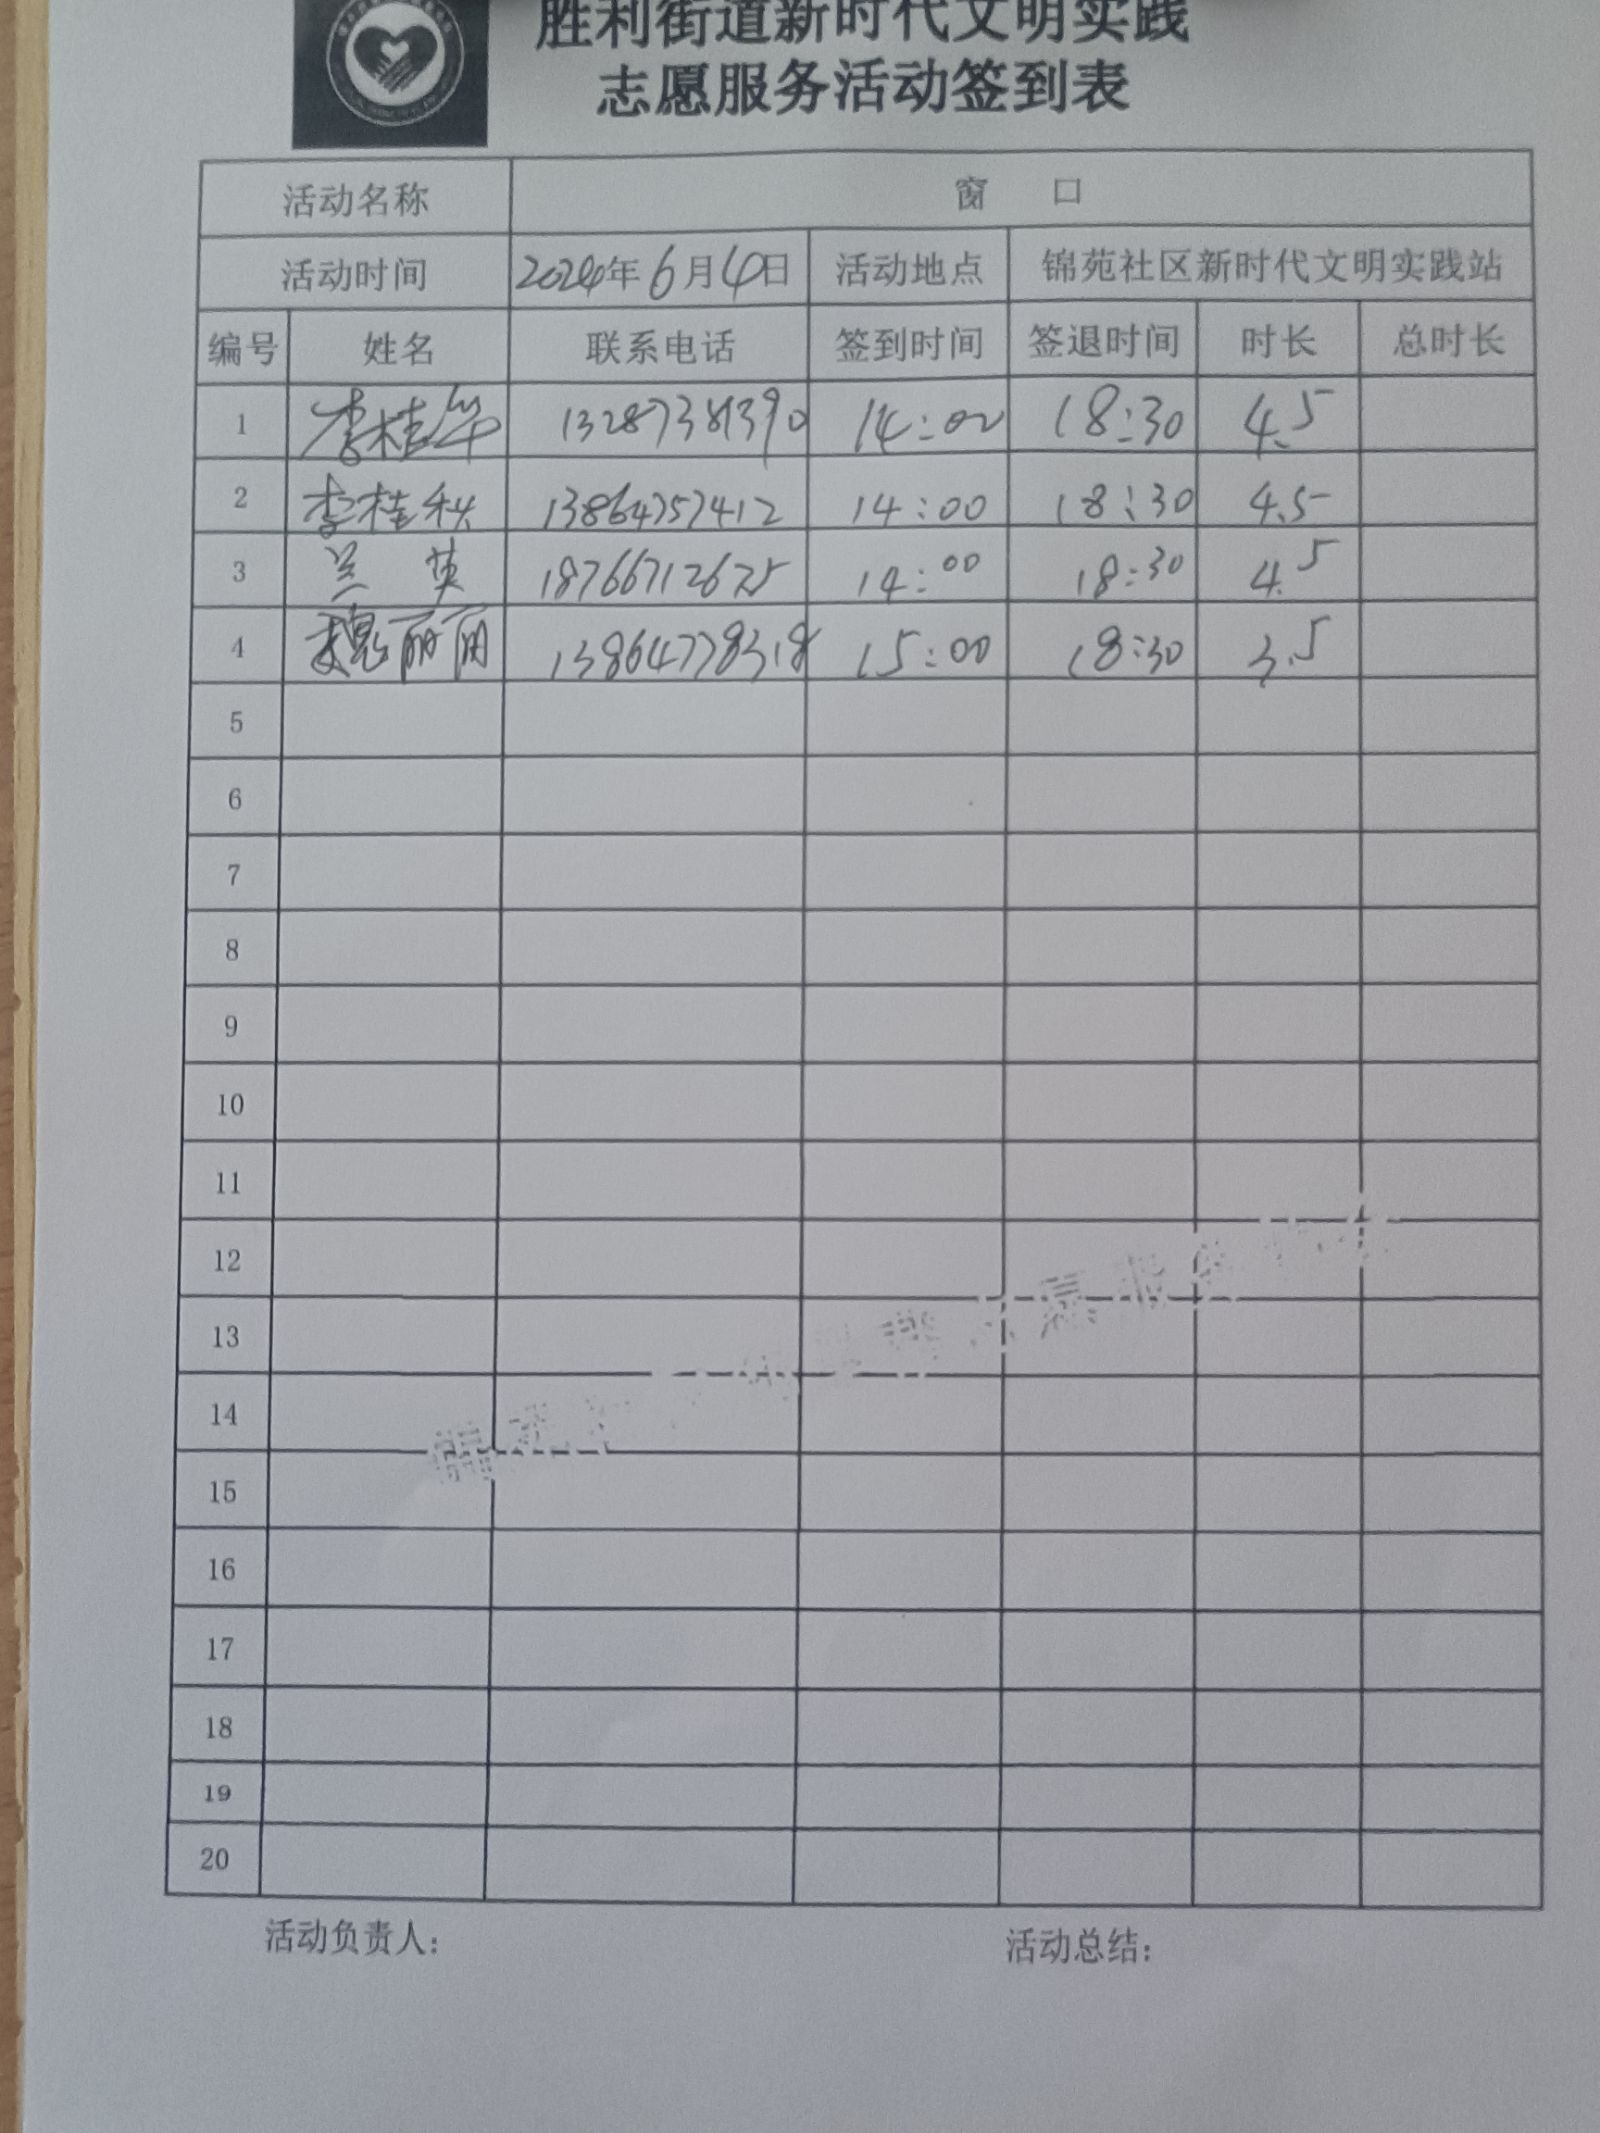 胜利街道新时代文明实践
志愿服务活动签到表
活动名称 窗 口
活动时间 2024年6月4日 活动地点 锦苑社区新时代文明实践站
编号 姓名 联系电话 签到时间 签退时间 时长 总时长
1 李桂华 13287381390 14:00 18:30 4.5
2 李桂秋 13864757412 14:00 18:30 4.5
3 兰英 18766712675 14:00 18:30 4.5
4 魏丽丽 13864778318 15:00 18:30 3.5
5
6
7
8
9
10
11
12
13
14
15
16
17
18
19
20
活动负责人: 活动总结: